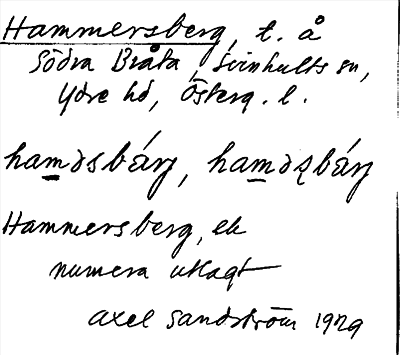 Hammersberg, t. å
Södra Bråta, Svinhults sn,
Ydre hd, Österg. l.
hamǝsbárj, hamǝʂbárj
Hammersberg, ek
numera utlagt
Axel Sandström 1929